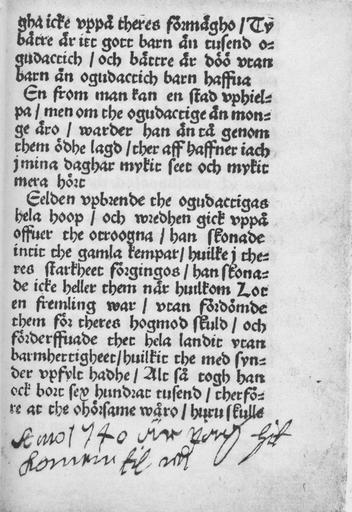 gha icke vppå theres förmågho / Ty
bättre är itt gott barn än tusend o-
gudactich / och bättre är döö vtan
barn än ogudactich barn haffua
En from man kan en stad vphiel-
pa / men om the ogudactige än mon-
ge äro / warder han än tå genom
them ödhe lagd / ther aff haffner iach
j mina daghar mykit seet och mykit
mera hört
Eelden vpbrende the ogudactigas
hela hoop / och wredhen gick vppå
offuer the otroogna / han skonade
intit the gamla kempar / huilke j the-
res starkheet förgingos / han skona-
de icke heller them när huilkom Lot
en fremling war / vtan fördömde
them för theres hogmod skuld / och
förderffuade thet hela landit vtan
barmhertigheet / huilkit the med syn-
der vpfylt hadhe / Alt så togh han
ock bort sex hundrat tusend / therfö-
re at the ohörsame wåro / huru skulle
Anno 1740 är
komin til